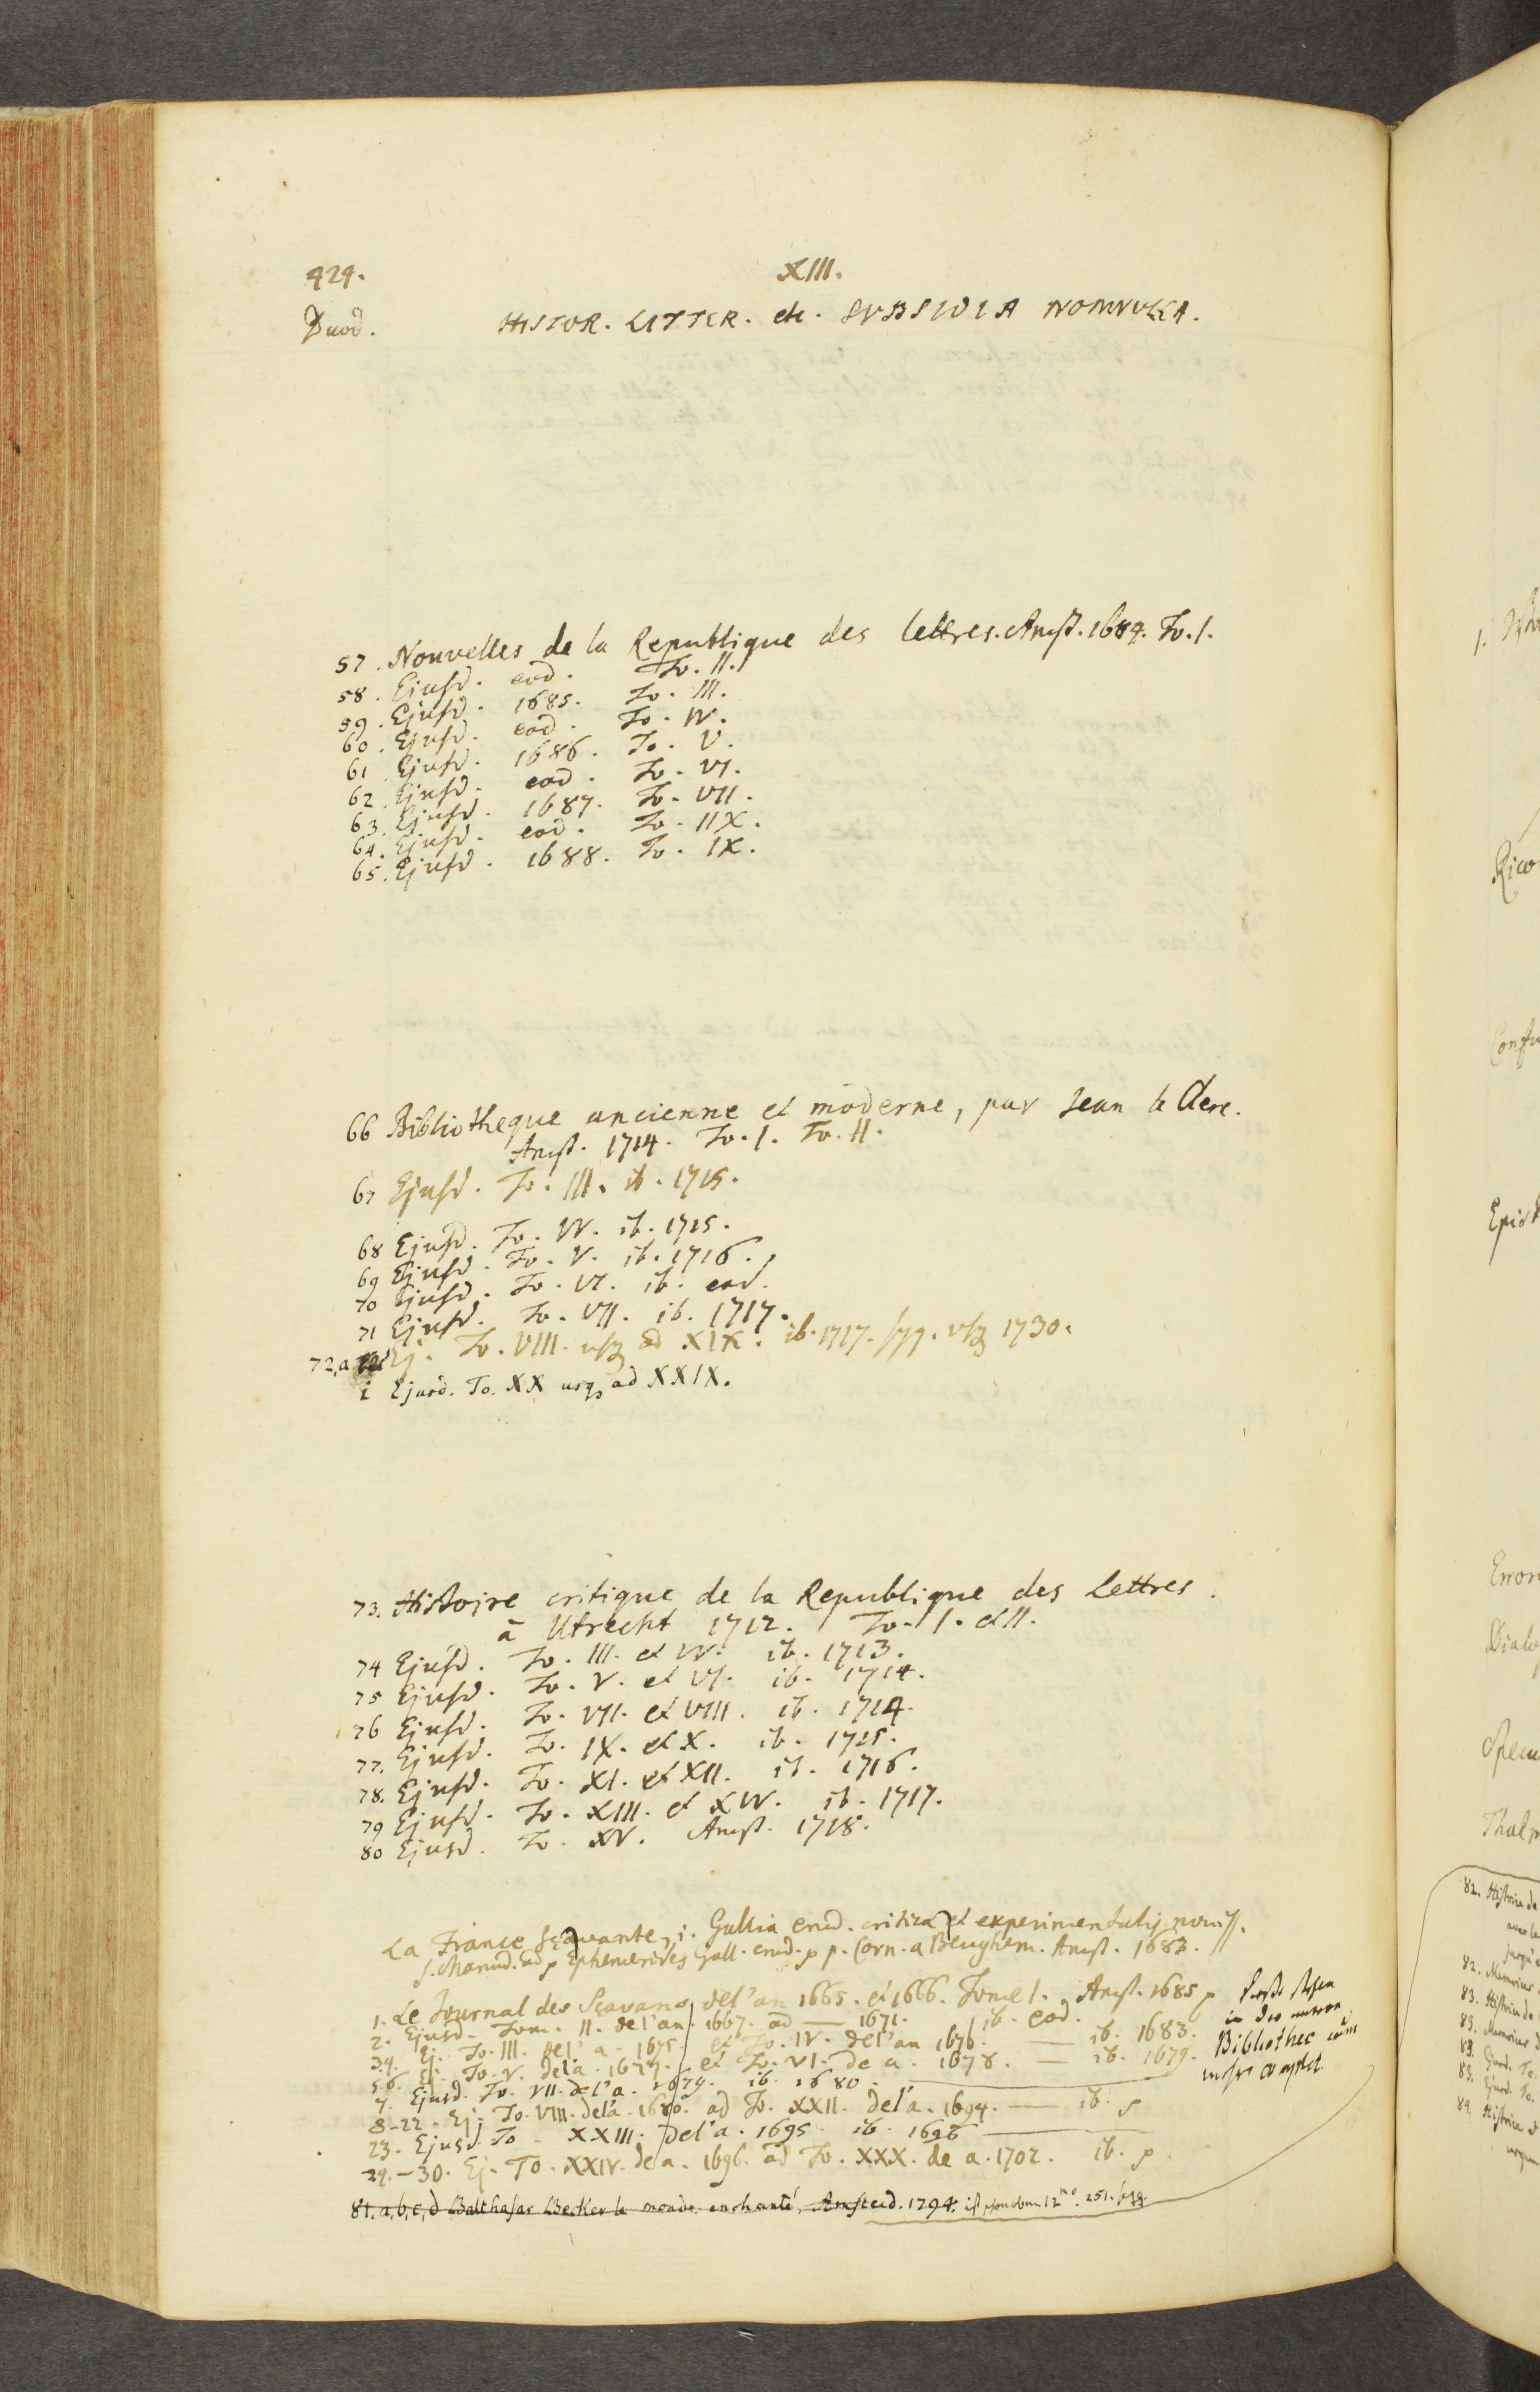 424.
XIII.
Duod.
HISTOR. LITTER. etc. SVBSIDIA NONNVLLA.
57. Nouvelles de la Republique des lettres. Amst. 1684. To. I.
58. Ejusd. eod. To. II.
59. Ejusd. 1685. To. III.
60. Ejusd. eod. To. IV.
61 Ejusd. 1686. To. V.
62. Ejusd. eod. To. VI.
63. Ejusd. 1687. To. VII.
64. Ejusd. eod. To. IIX.
65. Ejusd. 1688. To. IX.
66 Bibliotheque ancienne et moderne, par Jean le Clerc.
Amst. 1714. To. I. To. II.
67 Ejusd. To. III. ib. 1715.
68 Ejusd. To. IV. ib. 1715.
69 Ejusd. To. V. ib. 1716.
70 Ejusd. To. VI. ib. eod.
71 Ejusd. To. VII. ib. 1717.
72,a Ej. To. VIII. usq ad XIX. ib. 1717. sqq. usq 1730.
i Ejusd. To. XX usq ad XXIX.
73. Histoire critique de la Republique des Lettres.
à Utrecht 1712. To. I. et II.
74 Ejusd. To. III. et IV. ib. 1713.
75 Ejusd. To. V. et VI. ib. 1714.
76 Ejusd. To. VII. et VIII. ib. 1714.
77. Ejusd. To. IX. et X. ib. 1715.
78. Ejusd. To. XI. et XII. ib. 1716.
79 Ejusd. To. XIII. et XIV. ib. 1717.
80 Ejusd. To. XV. Amst. 1718.
La France sçavante, i. Gallia erud. critica et experimentalis noviss.
s. Manud. ad Ephemerides Gall. erud. p. Corn. a Beughem. Amst. 1683.
1. Le Journal des Sçavans de l'an 1665. et 1666. Tome I. Amst. 1685
2. Ejusd. Tom. II. de l'an 1667. ad — 1671. ib. eod.
3.4. Ej. To. III. de l'a. 1675. et To. IV. de l'an 1676. — ib. 1683.
5.6. Ej. To. V. de l'a. 1677. et To. VI. de a. 1678. — ib. 1679.
7. Ejusd. To. VII. de l'a. 1679. ib. 1680.
8-22. Ej. To. VIII. de l'a. 1680. ad To. XXII. de l'a. 1694. — ib.
23. Ejusd. To XXIII. de l'a. 1695. ib. 1696
24.-30. Ej. To. XXIV. de a. 1696. ad To. XXX. de a. 1702. ib.
in der
Bibliothec
81. a, b, c, d Balthasar Becker le monde enchanté, Amsterd. 1794. 12mo. 251. sqq.
1.
Rico
Confu
Epist
Error
Dialo
Specu
82. Histoire de
82. Memoires
83. Histoire de
83. Memoires
83. Ejusd. To.
83. Ejusd. To.
84. Histoire